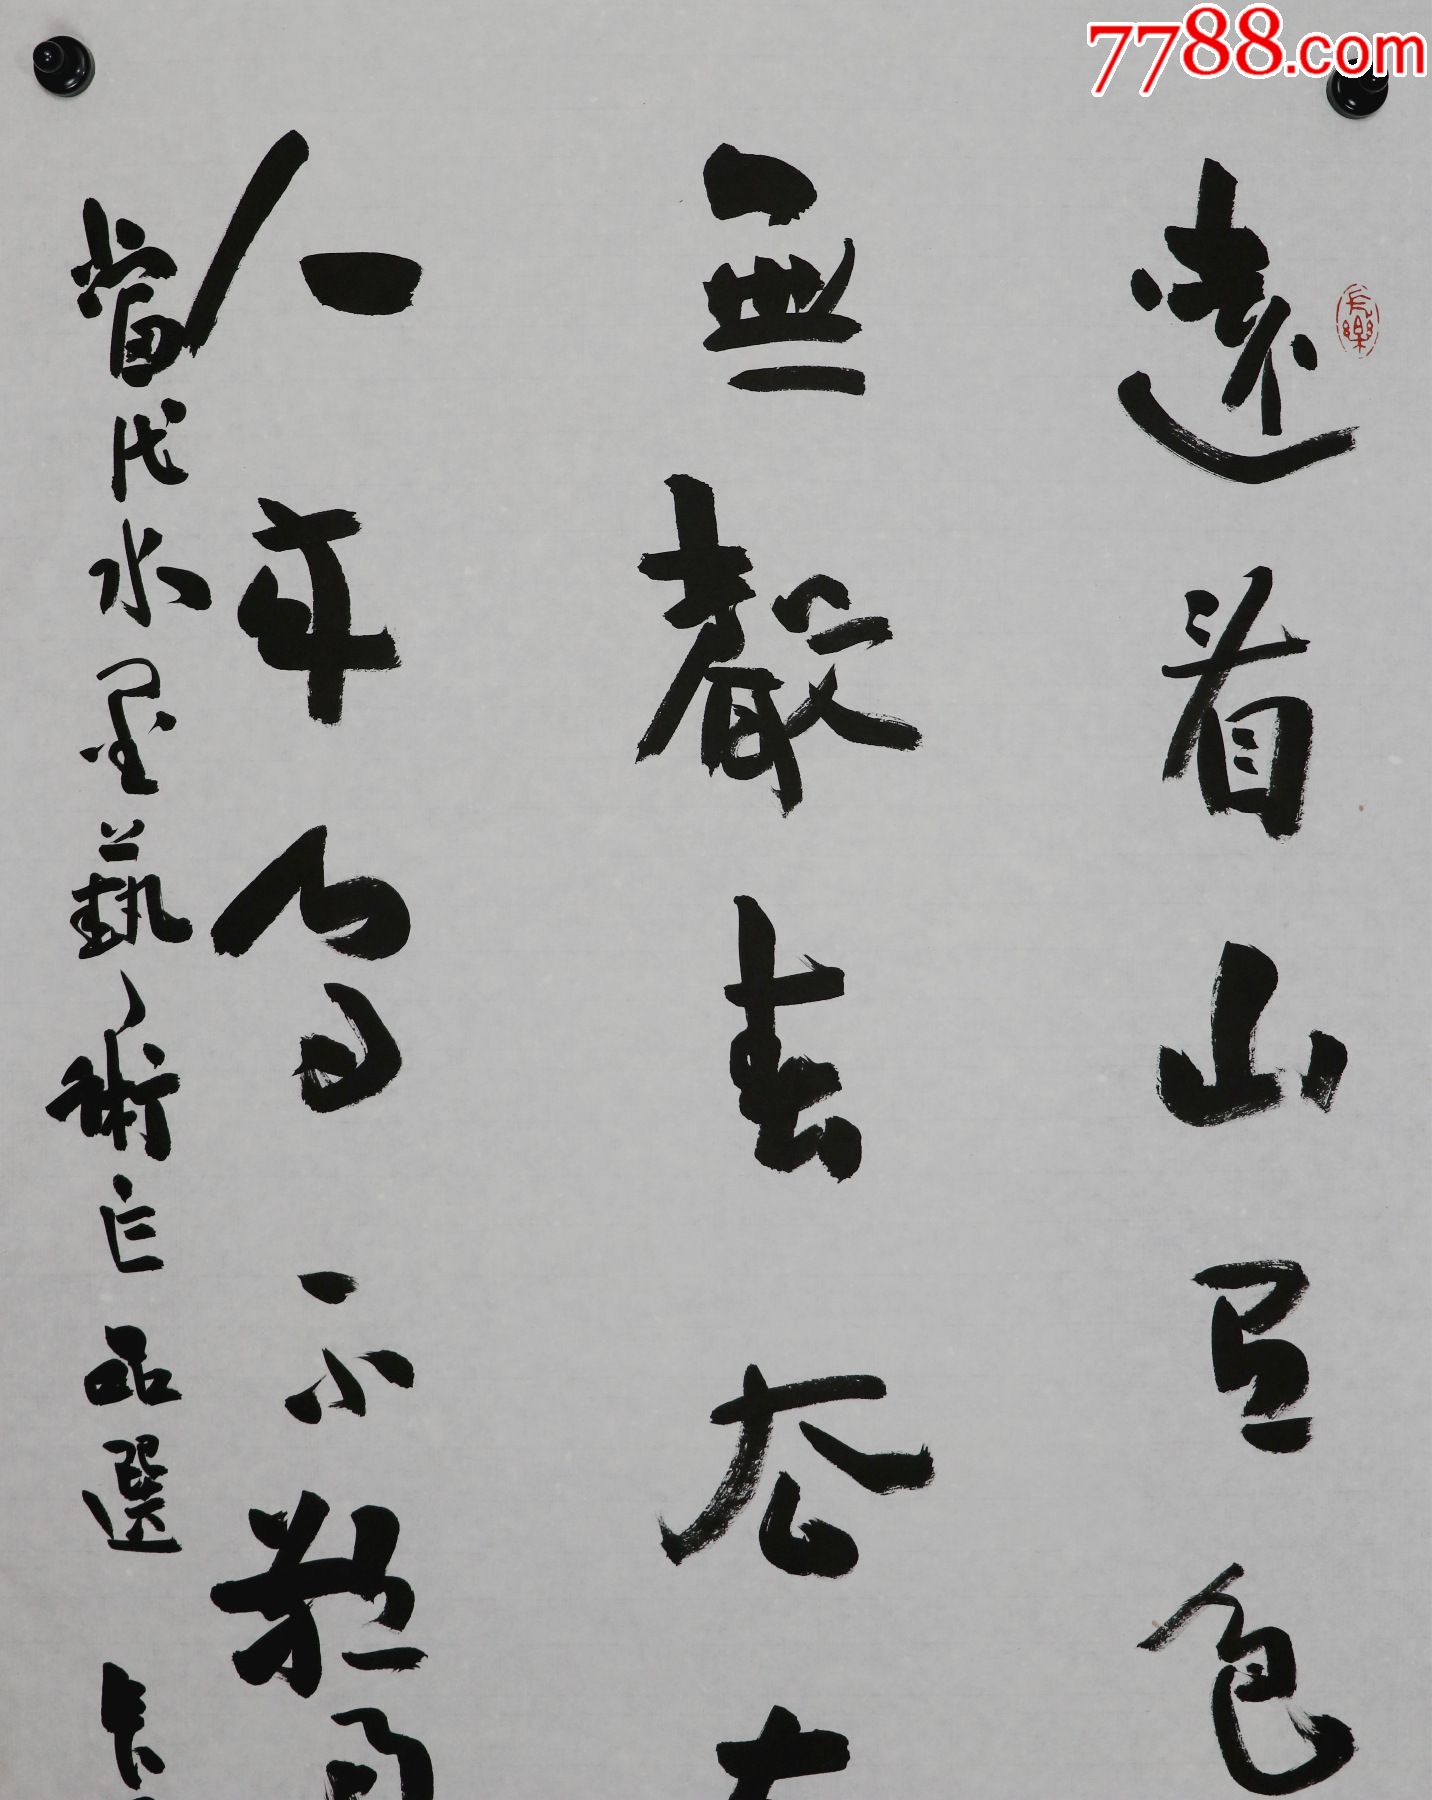 長樂
遠看山有色
無聲春去
人來鳥不驚
當代水墨藝術作品選
7788.com